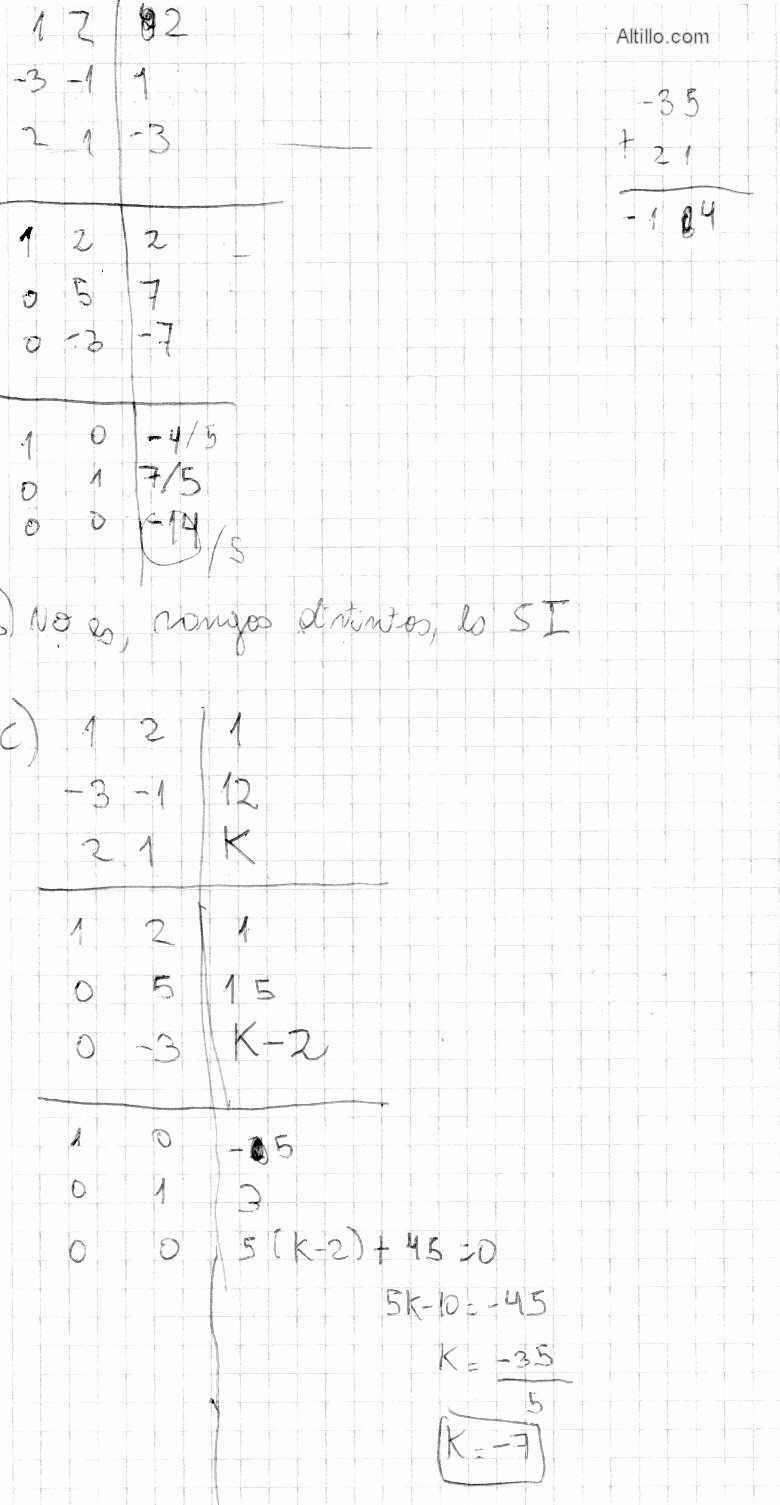 Altillo.com
1 2 | 2
-3 -1 | 1
2 1 | -3
-35
+ 21
-14
1 2 | 2
0 5 | 7
0 -3 | -7
1 0 | -4/5
0 1 | 7/5
0 0 | -14/5
) No es, rangos distintos, es SI
c) 1 2 | 1
-3 -1 | 12
2 1 | K
1 2 | 1
0 5 | 15
0 -3 | K-2
1 0 | -5
0 1 | 3
0 0 | 5(K-2) + 45 = 0
5K-10 = -45
K = -35/5
K = -7